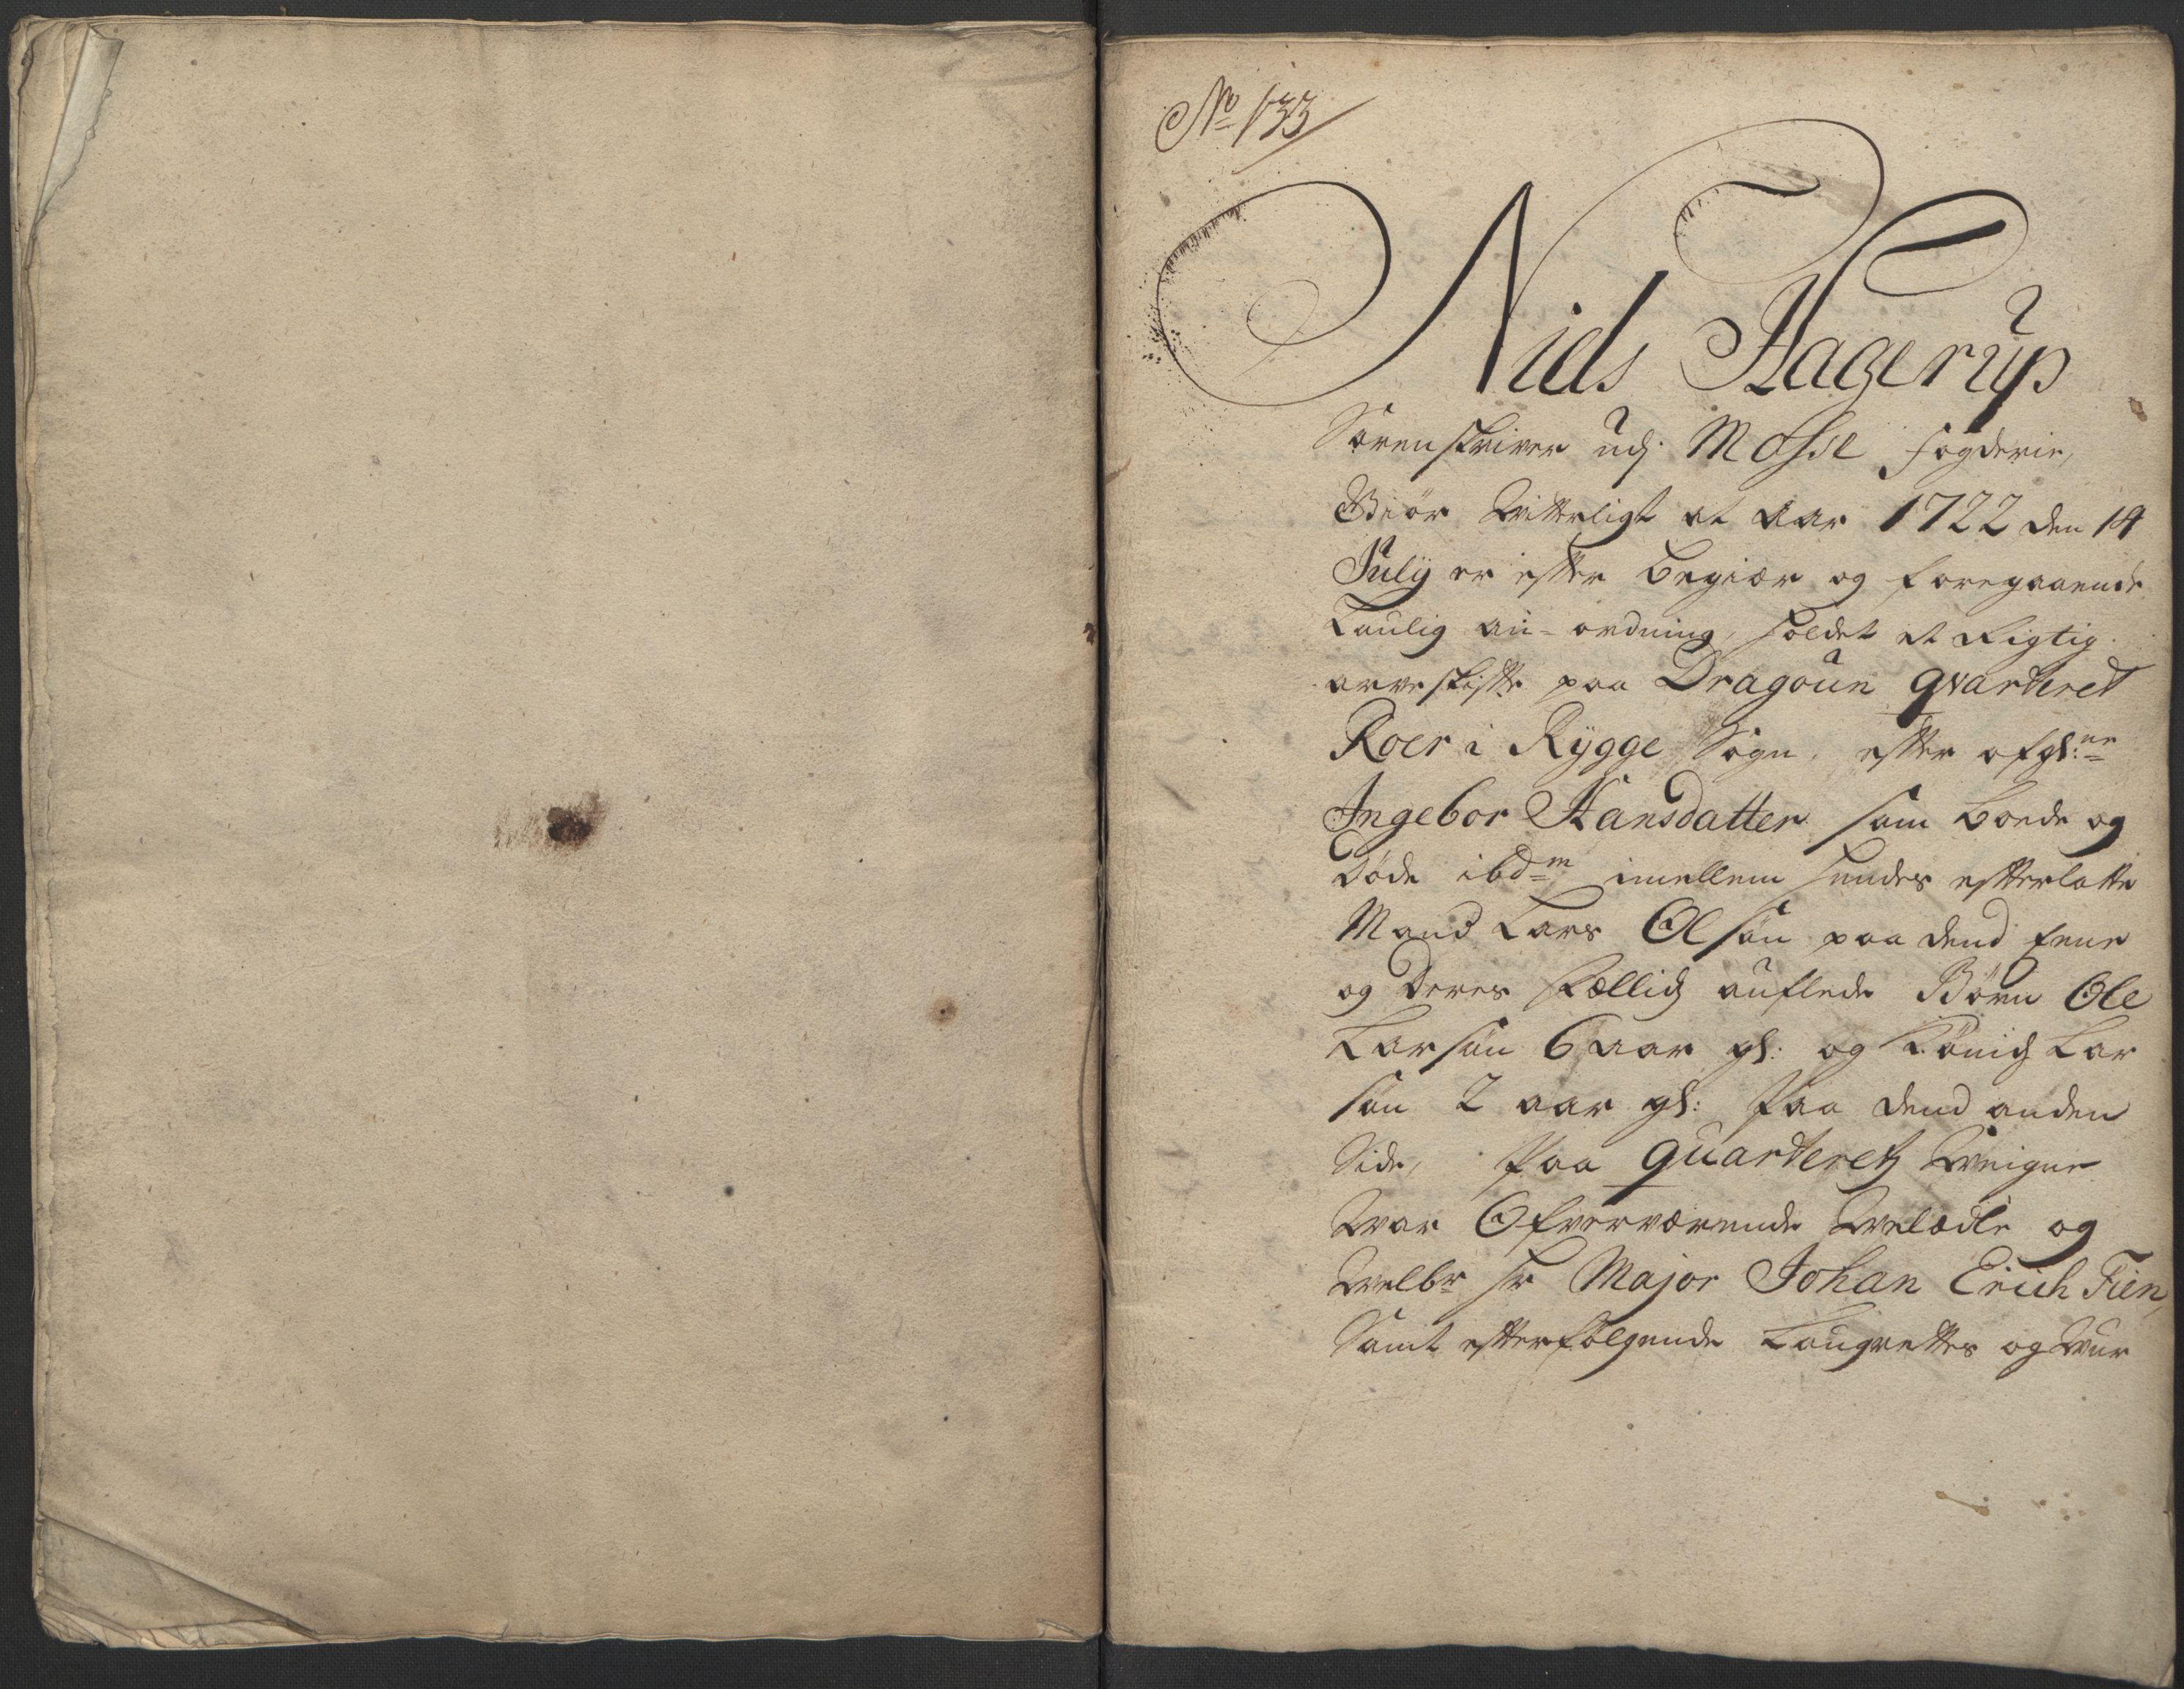 No 133
Niels Hagerup
Sorenskriver udj Mosse fogderie,
Giör Witterligt at Aar 1722 den 14
Julij er efter begiær og foregaaende
Laulig an-ordning, holdet et Rigtig
arveskifte paa Dragoun qvarteret
Roer i Rygge Sogn, efter afgl:ne
Ingebor Hansdatter som boede og
döde ibdm imellem hendes efterlatte
Mand Lars Olsön paa dend eene
og deres sællig auflede Börn Ole
Larsön 6 aar gl: og Lönich Lar
sön 2 aar gl: paa dend anden
Side, Paa quarterets Weigne
War Ofverværende Welædle og
Welbr hr Major Johan Erich Fien,
Samt efterfölgende Laugrettes og Wur